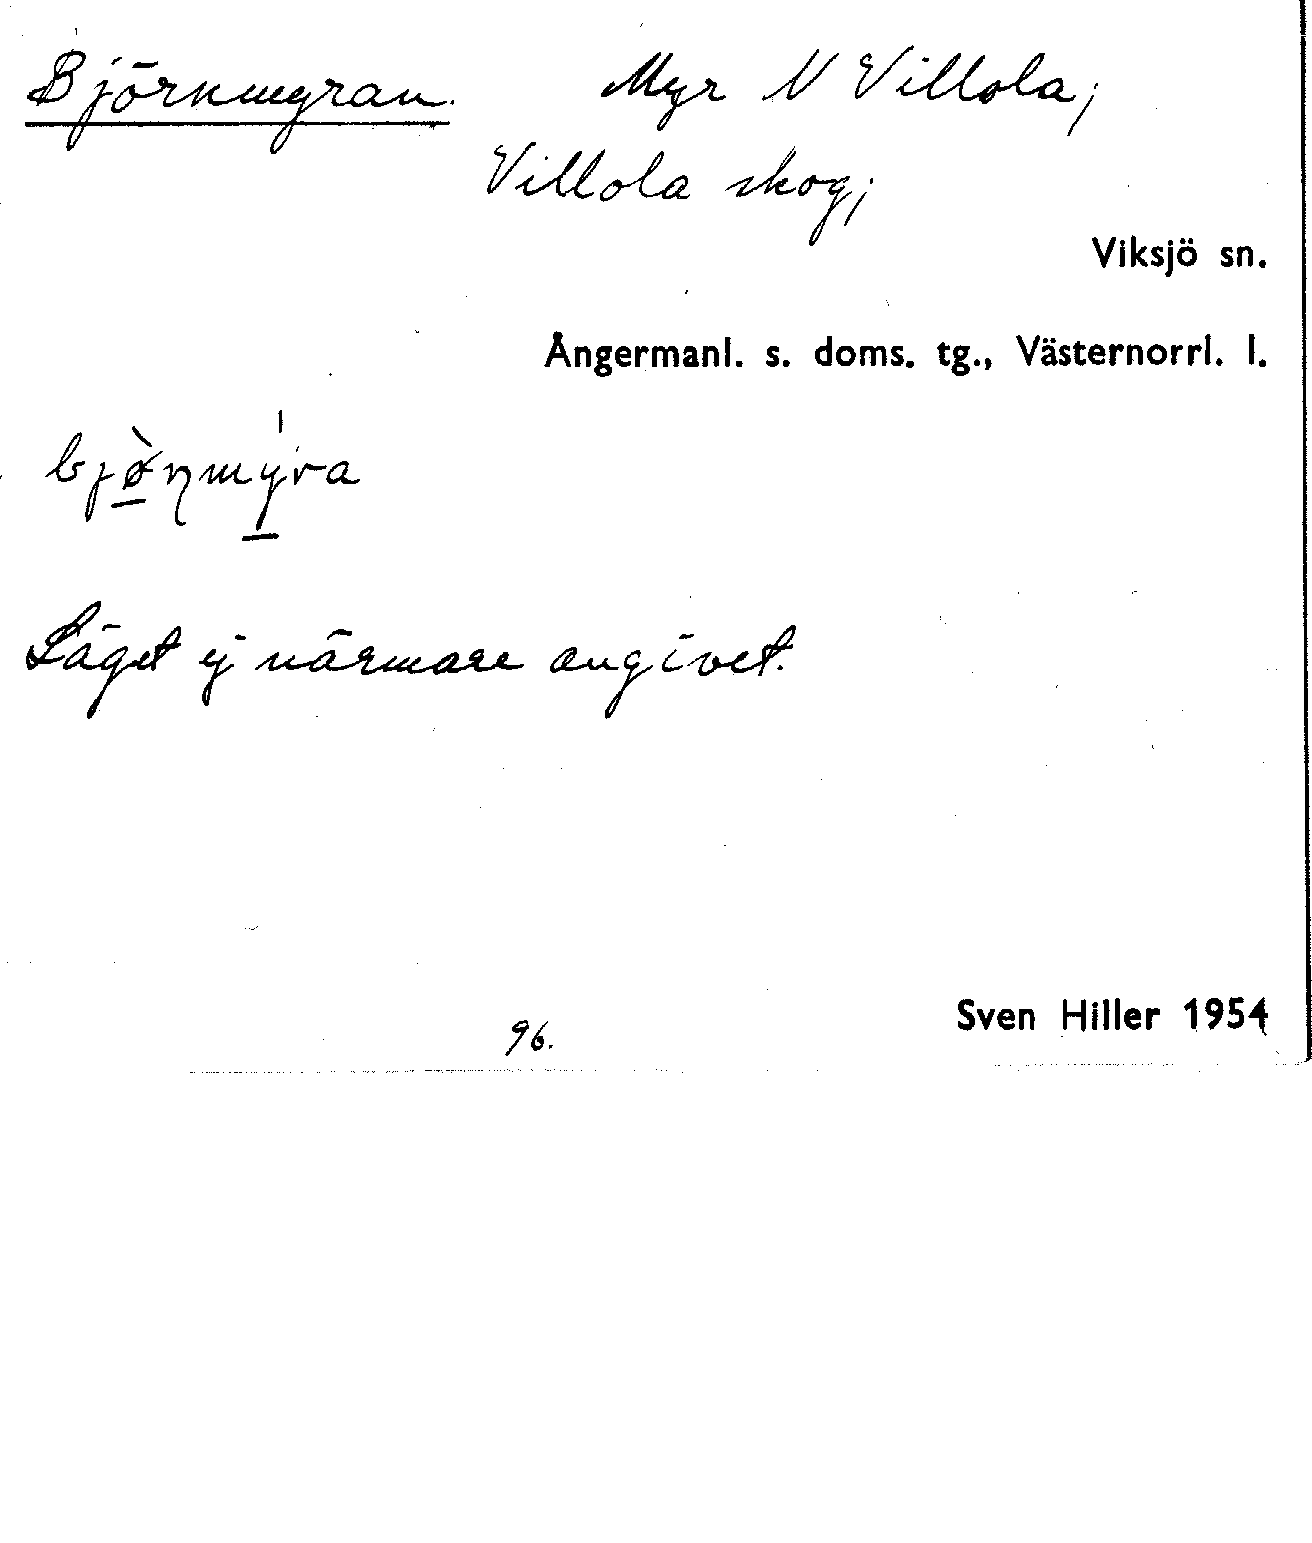 Björnmyran. Myr N Villola;
Villola skog;
Viksjö sn.
Ångermanl. s. doms. tg., Västernorrl. l.
bjø̠̀ɳmý̠ra
Läget ej närmare angivet.
96.
Sven Hiller 1954